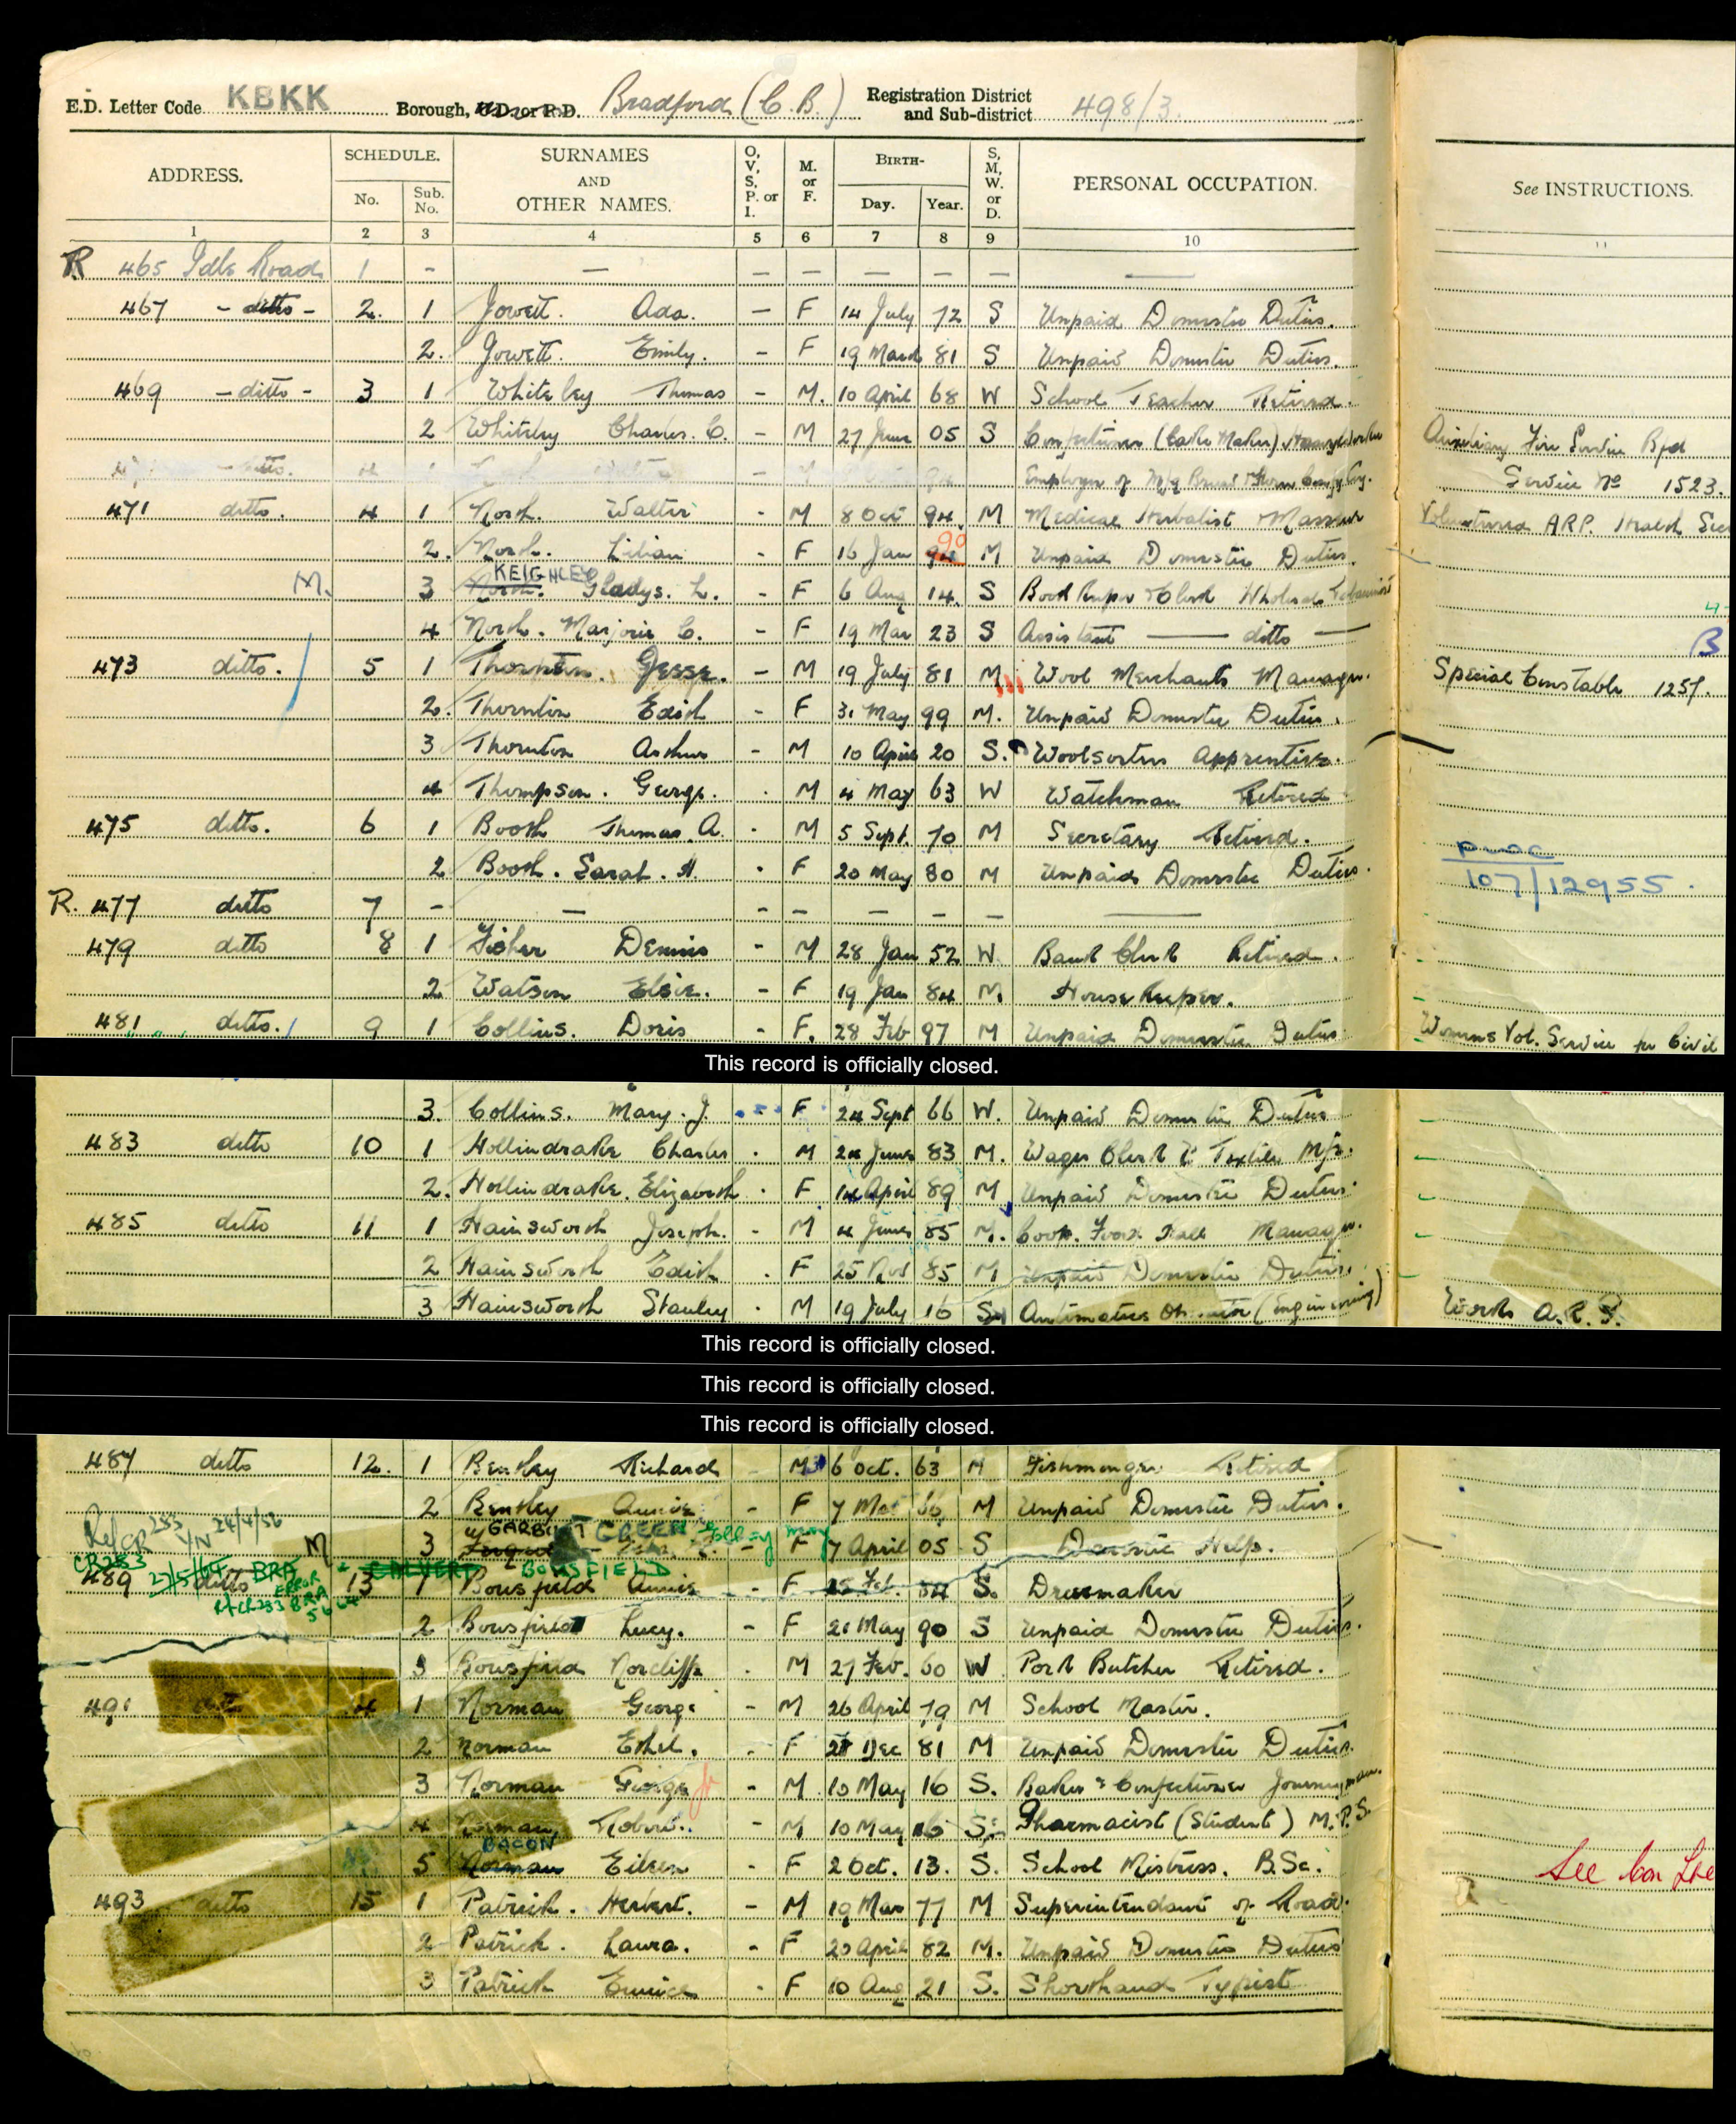 E.D. Letter Code KBKK Borough, U.D. or R.D. Bradford (C.B.) Registration District and Sub-district 498/3.
ADDRESS. SCHEDULE. No. Sub. No. SURNAMES AND OTHER NAMES. O, V, S, P. or I. M. or F. BIRTH- Day. Year. S, M, W. or D. PERSONAL OCCUPATION. See INSTRUCTIONS.
1 2 3 4 5 6 7 8 9 10 11
R 465 Idle Road 1 - — — — — — — —
467 - ditto - 2. 1 Jowett. Ada. — F 14 July 72 S Unpaid Domestic Duties.
2. Jowett. Emily. - F 19 March 81 S Unpaid Domestic Duties.
469 - ditto - 3 1 Whiteley Thomas - M. 10 April 68 W School Teacher Retired.
2 Whiteley Charles. C. - M 27 June 05 S Confectioner (Cake Maker) Heavy Worker Auxiliary Fire Service Bfd
ditto. 4 1 Employer of Service No 1523.
471 ditto. 4 1 North. Walter - M 8 Oct 94. M Medical Herbalist & Masseur Volunteered A.R.P. Health
2. North. Lilian - F 16 Jan 90 M Unpaid Domestic Duties
M. 3 North. KEIGHLEY Gladys. L. - F 6 Aug 14. S Book Keeper & Clerk Wholesale
4 North. Marjorie C. - F 19 Mar 23 S Assistant — ditto — B
473 ditto. 5 1 Thornton. Jesse. - M 19 July 81 M. Wool Merchants Manager. Special Constable 1257.
2. Thornton Edith - F 31 May 99 M. Unpaid Domestic Duties.
3 Thornton Arthur - M 10 April 20 S. Woolsorters Apprentice.
4 Thompson. George. . M 4 May 63 W Watchman Retired
475 ditto. 6 1 Booth Thomas. A. . M 5 Sept. 70 M Secretary Retired.
2 Booth. Sarah. H. . F 20 May 80 M Unpaid Domestic Duties.
107/12955.
R. 477 ditto 7 - — - - — — — —
479 ditto 8 1 Fisher Dennis - M 28 Jan 52 W. Bank Clerk Retired.
2 Watson Elsie. - F 19 Jan 84 M. House Keeper.
481 ditto. 9 1 Collins. Doris - F. 28 Feb 97 M Unpaid Domestic Duties Womens Vol. Service for Civil
This record is officially closed.
3. Collins. Mary. J. F 24 Sept 66 W. Unpaid Domestic Duties
483 ditto 10 1 Hollindrake Charles . M 24 June 83 M. Wages Clerk Textile Mfr.
2. Hollindrake. Elizabeth . F 14 April 89 M Unpaid Domestic Duties
485 ditto 11 1 Hainsworth Joseph. - M 4 June 85 M. Manager.
2 Hainsworth Edith . F 25 Nov 85 M Unpaid Domestic Duties.
3 Hainsworth Stanley . M 19 July 16 S (Engineering) Works
This record is officially closed.
This record is officially closed.
This record is officially closed.
487 ditto 12. 1 Bentley Richard M 6 Oct. 63 M Fishmonger Retired
2 Bentley Annie - F 7 66 M Unpaid Domestic Duties.
M 3 GREEN F 7 April 05 S Domestic Help.
CR283 BRA CALVERT BOWSFIELD
489 ditto 13 1 Bowsfield Annie - F 25 Feb. 84 S. Dressmaker
ERROR
2 Bowsfield Lucy. - F 21 May 90 S Unpaid Domestic Duties.
3 Bowsfield Norcliffe . M 27 Feb. 60 W Pork Butcher Retired.
491 ditto 14 1 Norman George - M 26 April 79 M School Master.
2 Norman Ethel. . F 27 Dec 81 M Unpaid Domestic Duties.
3 Norman George Jr - M 10 May 16 S. Baker & Confectioner Journeyman.
4 Norman Robert. - M 10 May 16 S. Pharmacist (Student) M.P.S.
BACON
5 Norman Eileen - F 2 Oct. 13. S. School Mistress. B.Sc. See
493 ditto 15 1 Patrick. Herbert. - M 19 Mar 77 M Superintendant of Road.
2 Patrick. Laura. - F 20 April 82 M. Unpaid Domestic Duties
3 Patrick Eunice - F 10 Aug 21 S. Shorthand Typist